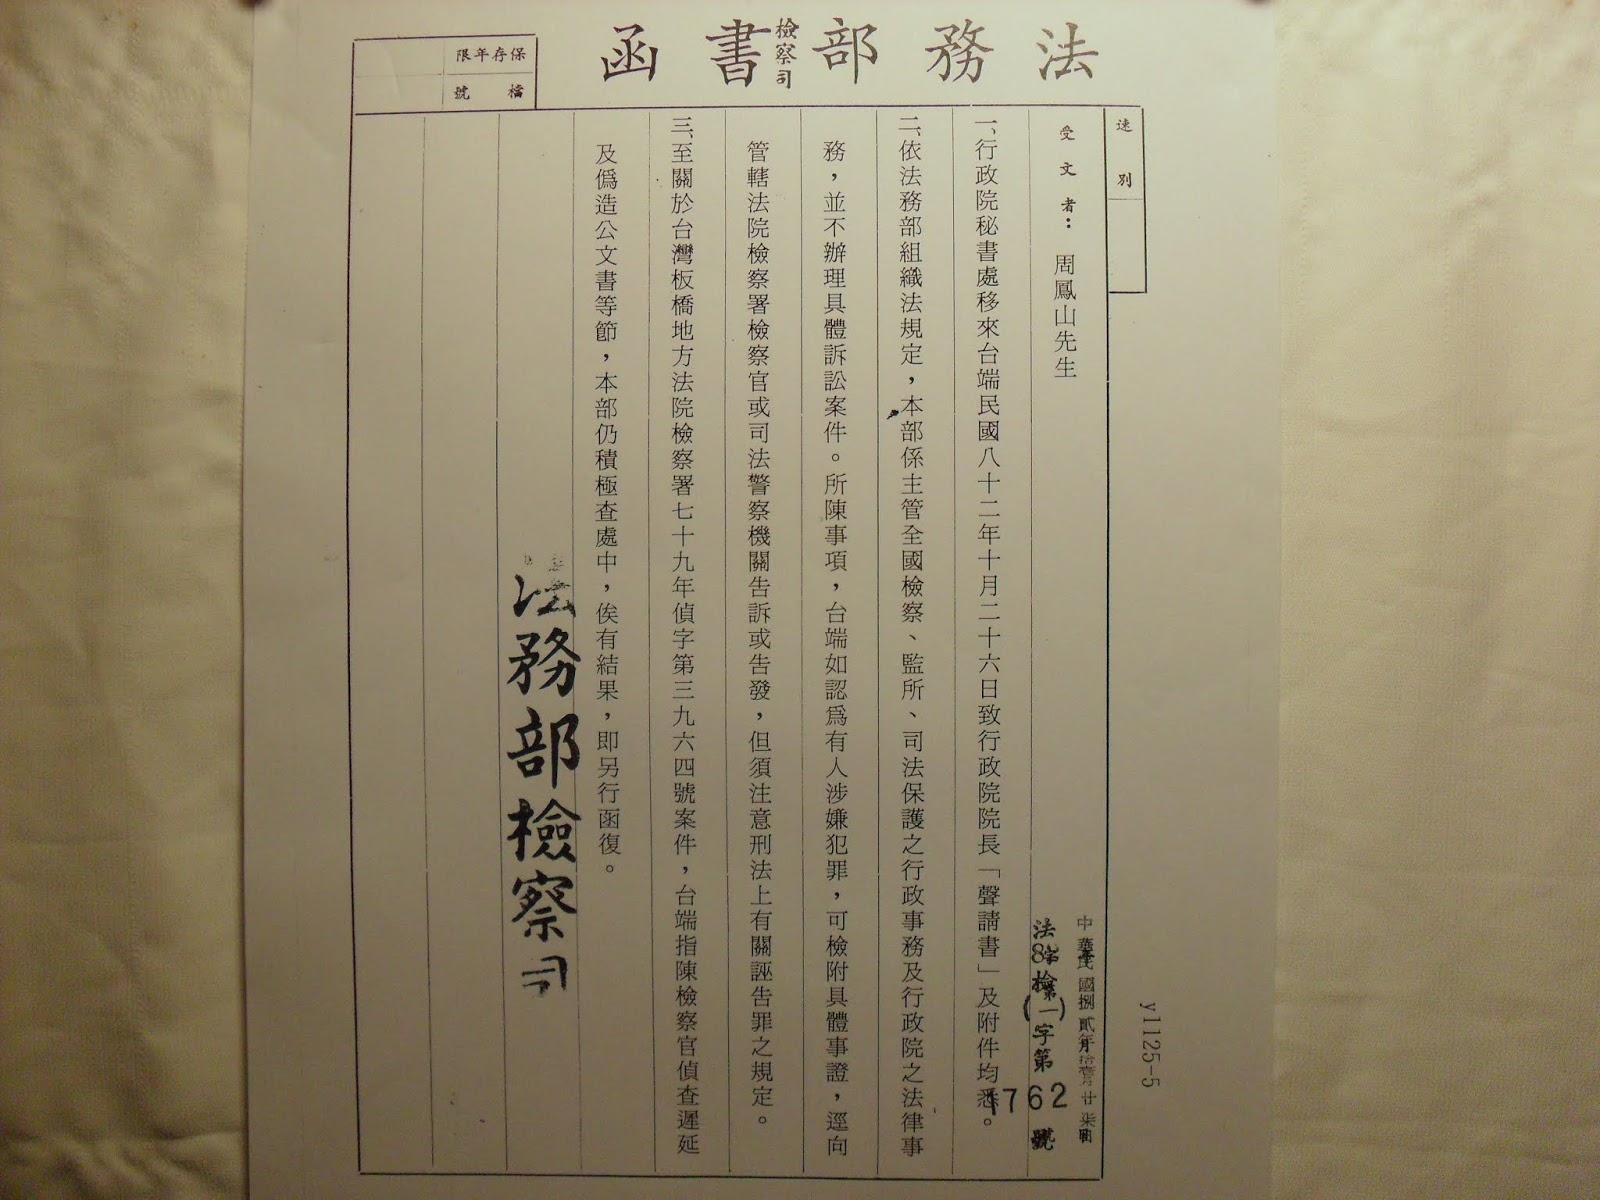 法務部檢察司書函
保存年限
檔號
速別
受文者：周鳳山先生
中華民國捌貳年拾壹月廿柒
法82檢(一)字第1762號
一、行政院秘書處移來台端民國八十二年十月二十六日致行政院院長「聲請書」及附件均悉。
二、依法務部組織法規定，本部係主管全國檢察、監所、司法保護之行政事務及行政院之法律事
務，並不辦理具體訴訟案件。所陳事項，台端如認爲有人涉嫌犯罪，可檢附具體事證，逕向
管轄法院檢察署檢察官或司法警察機關告訴或告發，但須注意刑法上有關誣告罪之規定。
三、至關於台灣板橋地方法院檢察署七十九年偵字第三九六四號案件，台端指陳檢察官偵查遲延
及僞造公文書等節，本部仍積極查處中，俟有結果，即另行函復。
法務部檢察司
y1125-5